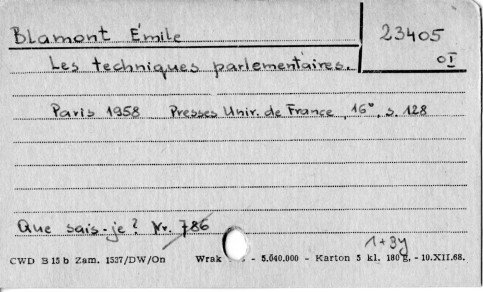 Blamont Émile
23405
OI
Les techniques parlementaires.
Paris 1958 Presses Univ. de France, 16°, s. 128
Que sais-je? Nr. 786
1+3y
CWD B 15 b Zam. 1537/DW/On Wrak - 5.640.000 - Karton 5 kl. 180 g. - 10.XII.68.